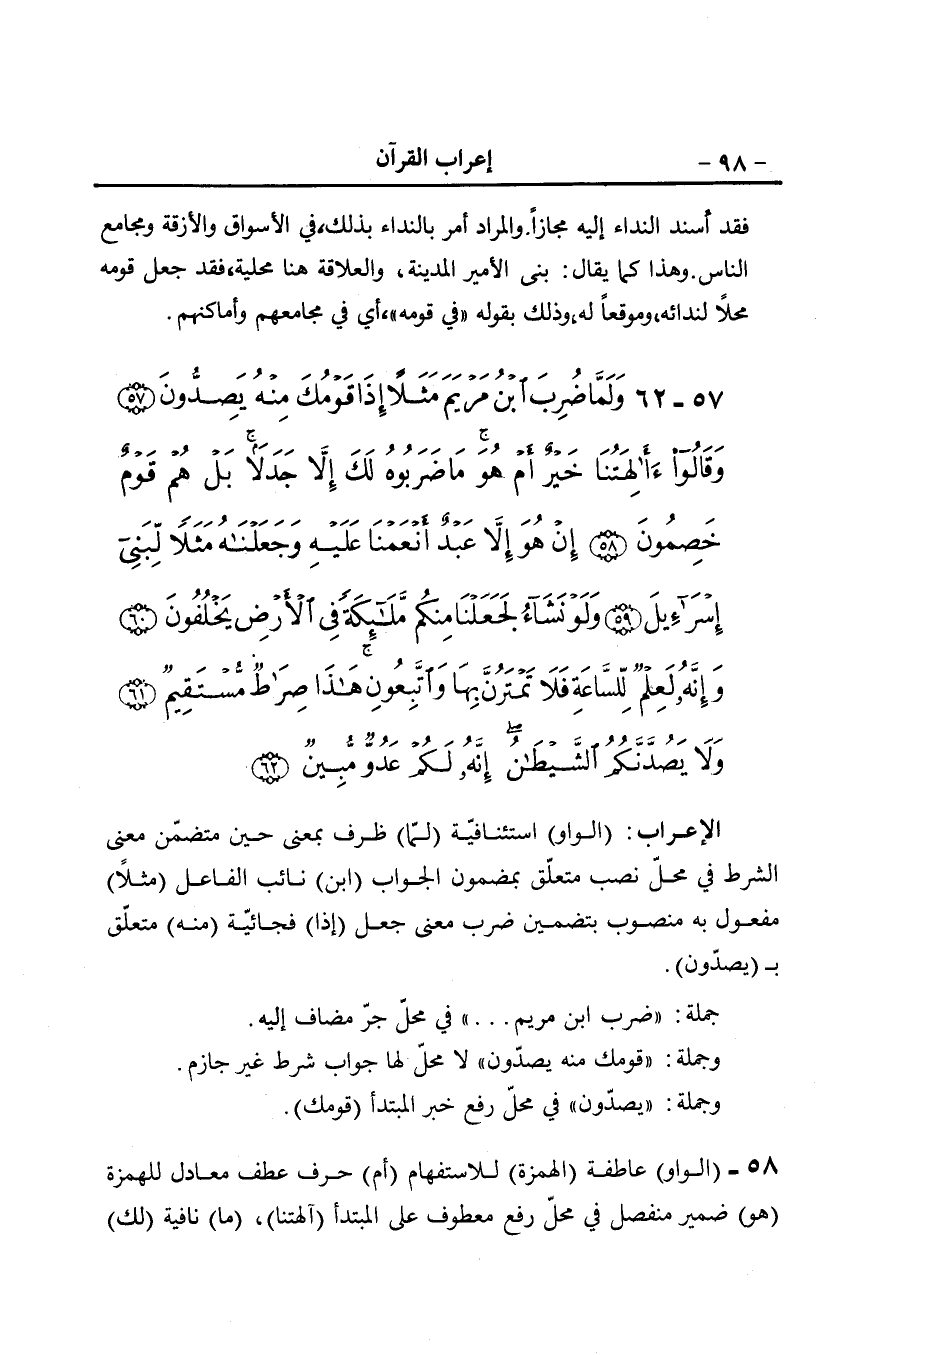 - ٩٨ - إعراب القرآن
فقد أسند النداء إليه مجازاً.والمراد أمر بالنداء بذلك،في الأسواق والأزقة ومجامع
الناس.وهذا كما يقال: بنى الأمير المدينة، والعلاقة هنا محلية،فقد جعل قومه
محلاً لندائه،وموقعاً له،وذلك بقوله «في قومه»،أي في مجامعهم وأماكنهم.
٥٧ - ٦٢ وَلَمَّا ضُرِبَ ٱبْنُ مَرْيَمَ مَثَلًا إِذَا قَوْمُكَ مِنْهُ يَصِدُّونَ ﴿٥٧﴾
وَقَالُوٓا۟ ءَأَٰلِهَتُنَا خَيْرٌ أَمْ هُوَ ۚ مَا ضَرَبُوهُ لَكَ إِلَّا جَدَلًۢا ۚ بَلْ هُمْ قَوْمٌ
خَصِمُونَ ﴿٥٨﴾ إِنْ هُوَ إِلَّا عَبْدٌ أَنْعَمْنَا عَلَيْهِ وَجَعَلْنَٰهُ مَثَلًا لِّبَنِىٓ
إِسْرَٰٓءِيلَ ﴿٥٩﴾ وَلَوْ نَشَآءُ لَجَعَلْنَا مِنكُم مَّلَٰٓئِكَةً فِى ٱلْأَرْضِ يَخْلُفُونَ ﴿٦٠﴾
وَإِنَّهُۥ لَعِلْمٌ لِّلسَّاعَةِ فَلَا تَمْتَرُنَّ بِهَا وَٱتَّبِعُونِ ۚ هَٰذَا صِرَٰطٌ مُّسْتَقِيمٌ ﴿٦١﴾
وَلَا يَصُدَّنَّكُمُ ٱلشَّيْطَٰنُ ۖ إِنَّهُۥ لَكُمْ عَدُوٌّ مُّبِينٌ ﴿٦٢﴾
الإعراب: (الواو) استئنافيّة (لمّا) ظرف بمعنى حين متضمّن معنى
الشرط في محلّ نصب متعلّق بمضمون الجواب (ابن) نائب الفاعل (مثلاً)
مفعول به منصوب بتضمين ضرب معنى جعل (إذا) فجائيّة (منه) متعلّق
بـ (يصدّون).
جملة: «ضرب ابن مريم...» في محلّ جرّ مضاف إليه.
وجملة: «قومك منه يصدّون» لا محلّ لها جواب شرط غير جازم.
وجملة: «يصدّون» في محلّ رفع خبر المبتدأ (قومك).
٥٨ - (الواو) عاطفة (الهمزة) للاستفهام (أم) حرف عطف معادل للهمزة
(هو) ضمير منفصل في محلّ رفع معطوف على المبتدأ (آلهتنا)، (ما) نافية (لك)